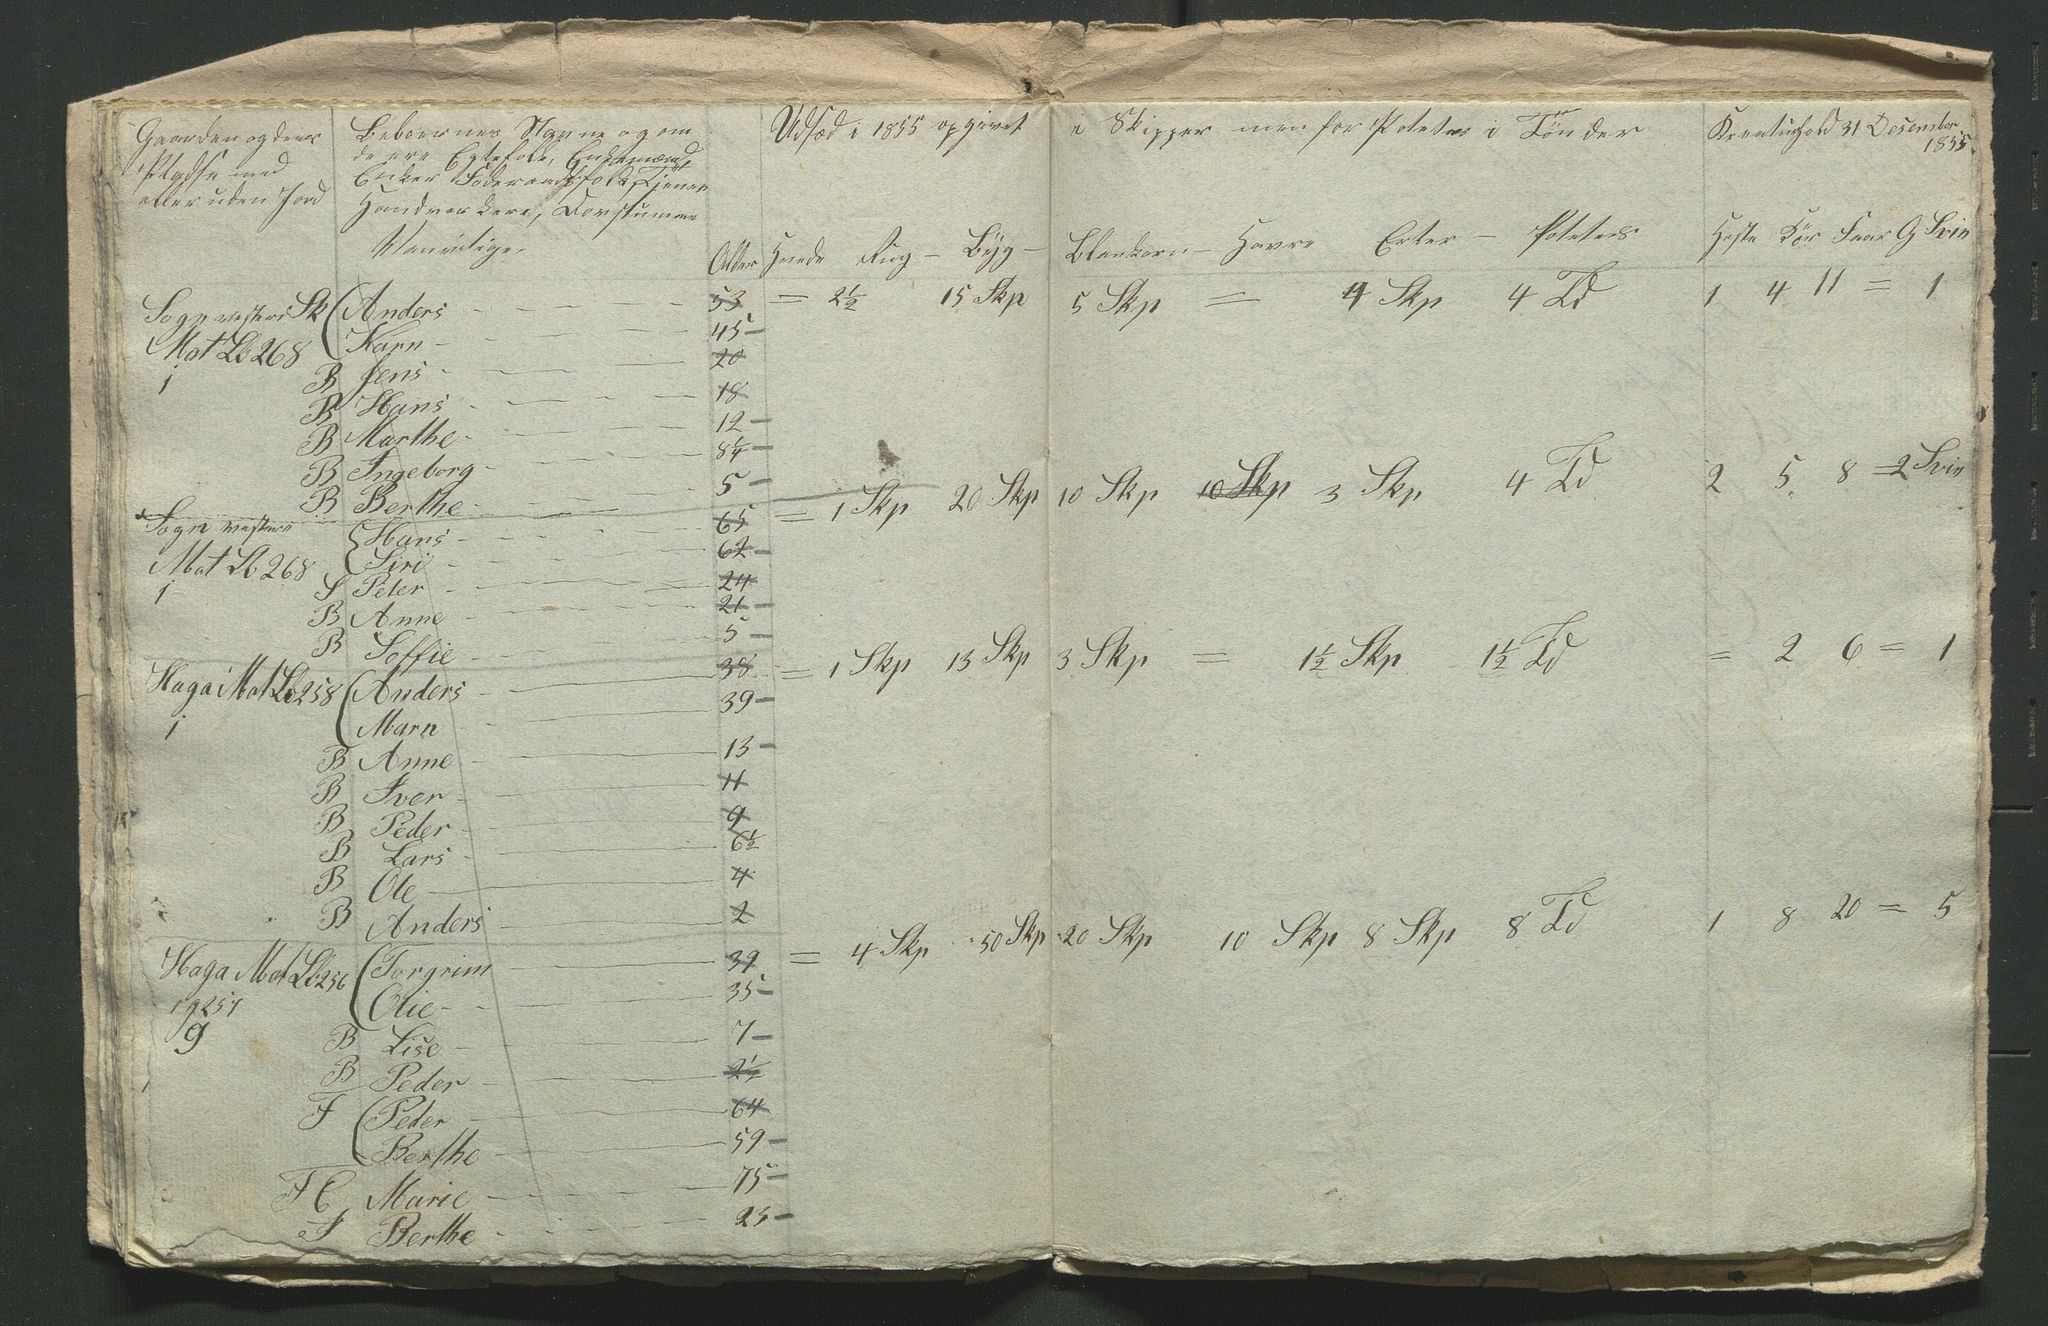 Gaarden og deres
Pladse med
eller uden Jord
Beboernes Navne og om
de ere Egtefolk, Enkemænd
Enker Foderaadsfolk, Tjenere
Handverkere, Dovstumme
Vanvitige.
Alder
Udsæd i 1855 opgivet i Skipper men for Poteter i Tönder
Hvede Rug - Byg - Blankorn - Havre Erter - Poteter
Kreaturhold 31 Desember
1855
Heste Kör Faar G Svin
Sogn vestere Sk Anders 53 = 2½ 15 Skp 5 Skp = 4 Skp 4 Td 1 4 11 = 1
Mat Lb 268 Karn 45
1 B Jens 20
B Hans 18
B Marthe 12
B Ingeborg 8¼
B Berthe 5
Sogn vestere Hans 65 = 1 Skp 20 Skp 10 Skp 10 Skp 3 Skp 4 Td 2 5 8 = 2 Svin
Mat Lb 268 Siri 62
1 S Peter 24
B Anne 21
B Soffie 5
Haga Mat Lb 258 Anders 38 = 1 Skp 13 Skp 3 Skp = 1½ Skp 1½ Td = 2 6 = 1
1 Marn 39
B Anne 13
B Iver 11
B Peder 9
B Lars 6½
B Ole 4
B Anders 2
Haga Mat Lb 256 Torgrim 39 = 4 Skp 50 Skp 20 Skp 10 Skp 8 Skp 8 Td 1 8 20 = 5
og 257 Olie 35
9 B Lise 7
B Peder 2½
F Peder 64
Berthe 59
F E Marie 75
T Berthe 23